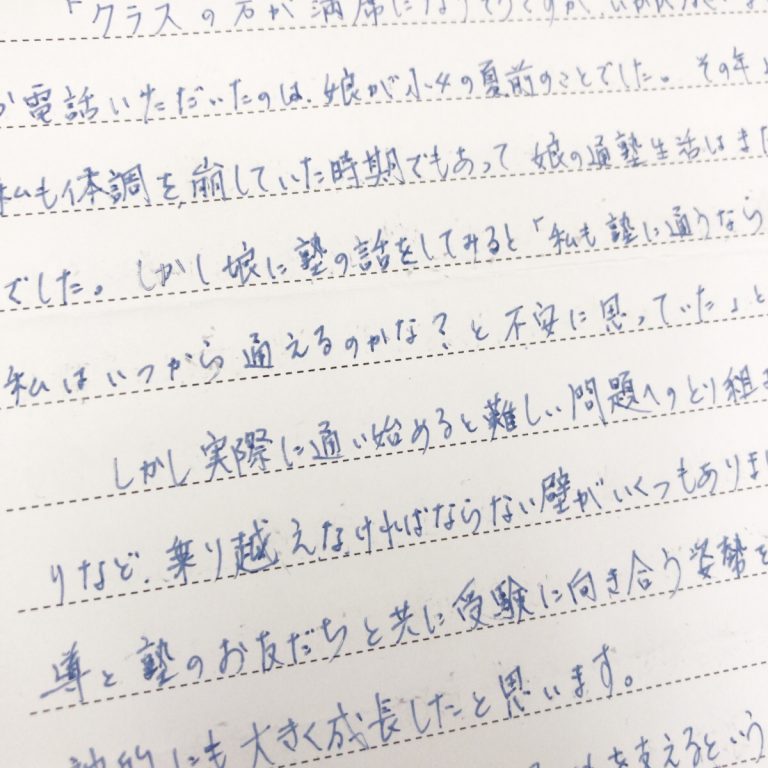 「クラスの方が満席になりそうですが、いかがなさいま
お電話いただいたのは、娘が小4の夏前のことでした。その年
私も体調を崩していた時期でもあって娘の通塾生活はまだ
でした。しかし娘に塾の話をしてみると「私も塾に通うなら
私はいつから通えるのかな?と不安に思っていた」と
しかし実際に通い始めると難しい問題へのとり組
りなど、乗り越えなければならない壁がいくつもありまし
導と塾のお友だちと共に受験に向き合う姿勢を
にも大きく成長したと思います。
を支えるという